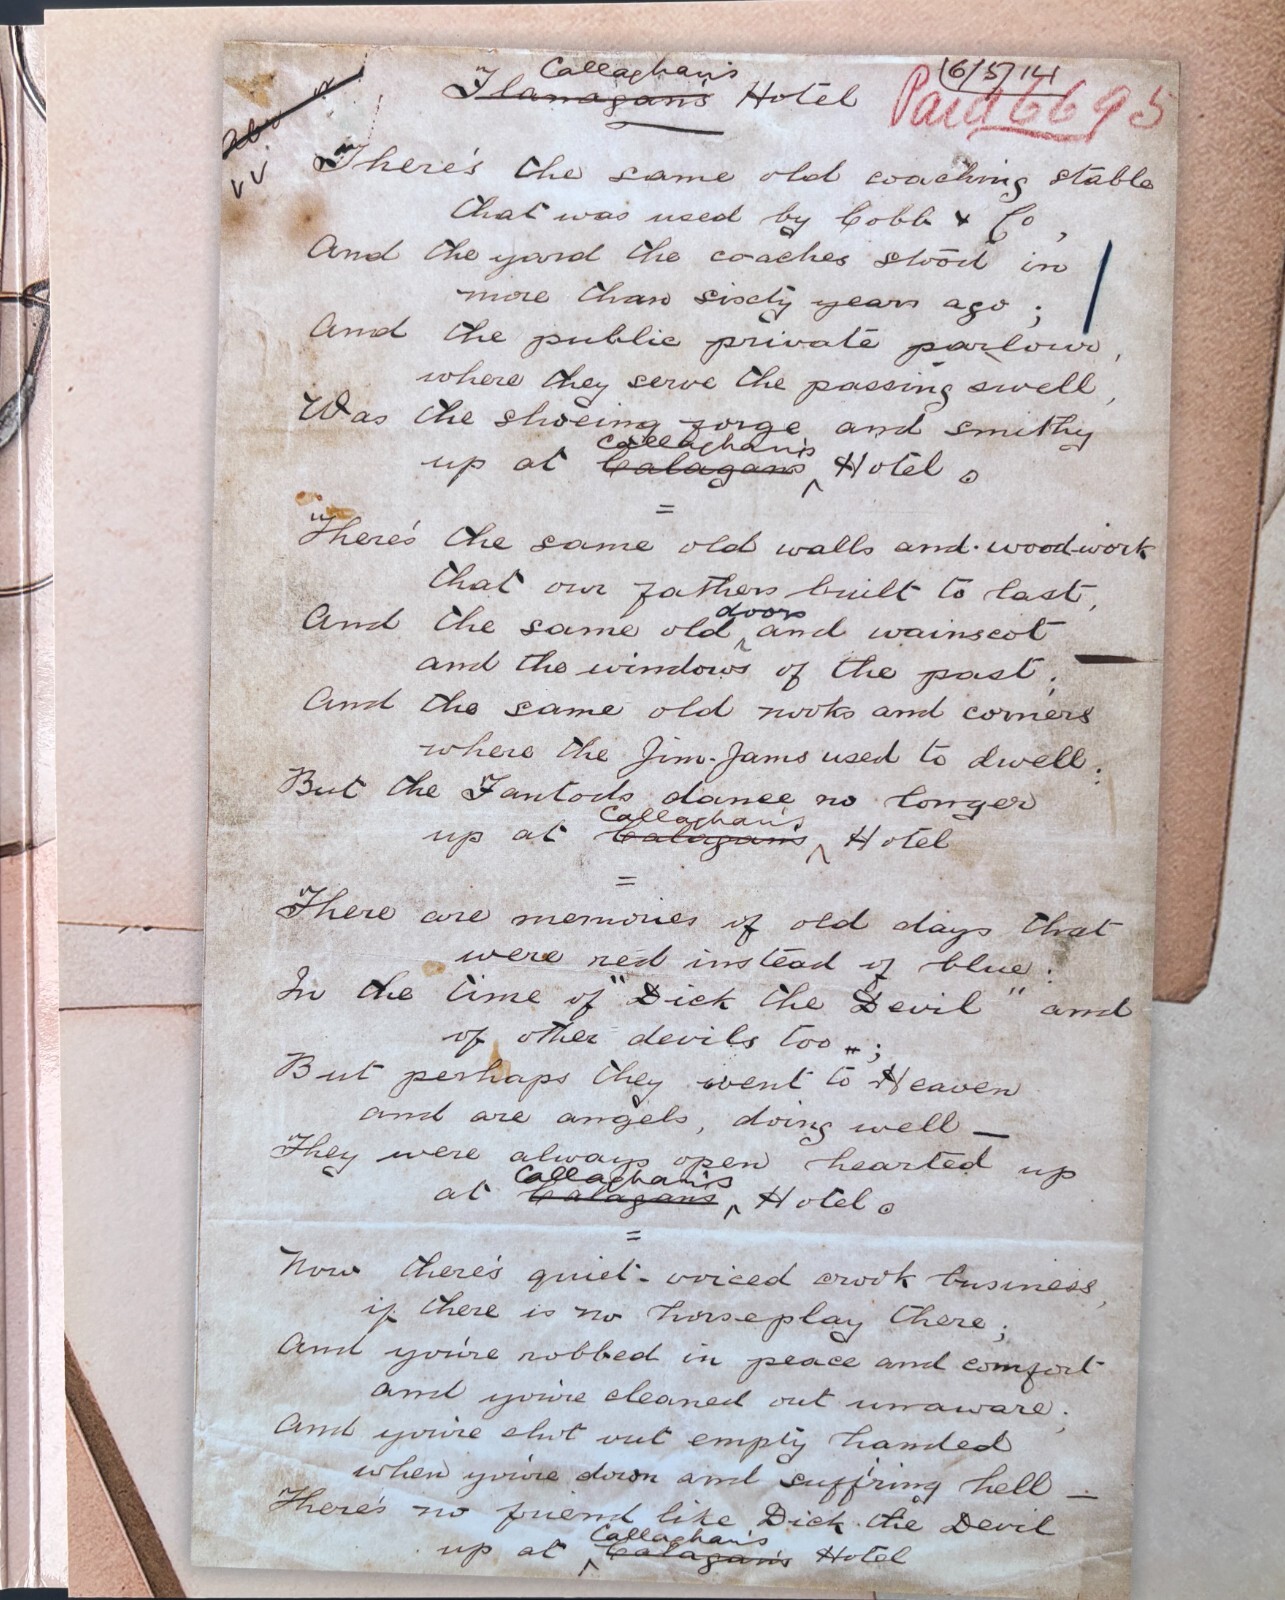 Callaghan's
Flanagan's Hotel
6/5/14
Paid 6695
There's the same old coaching stable
that was used by Cobb & Co,
And the yard the coaches stood in
more than sixty years ago;
And the public private parlour,
where they serve the passing swell,
Was the shoeing forge and smithy
Callaghan's
up at Calagan's ^ Hotel.
=
There's the same old walls and woodwork
that our fathers built to last,
doors
And the same old ^ and wainscot
and the windows of the past;
And the same old nooks and corners
where the Jim-Jams used to dwell;
But the Fantods dance no longer
Callaghan's
up at Calagan's ^ Hotel
=
There are memories of old days that
were red instead of blue;
In the time of "Dick the Devil" and
of other devils too;
But perhaps they went to Heaven
and are angels, doing well —
They were always open hearted up
Callaghan's
at Calagan's ^ Hotel.
=
Now there's quiet-voiced crook business,
if there is no horseplay there;
And you're robbed in peace and comfort
and you're cleaned out unaware;
And you're shot out empty handed
when you're down and suff'ring hell —
There's no friend like Dick the Devil
Callaghan's
up at ^ Calagan's Hotel